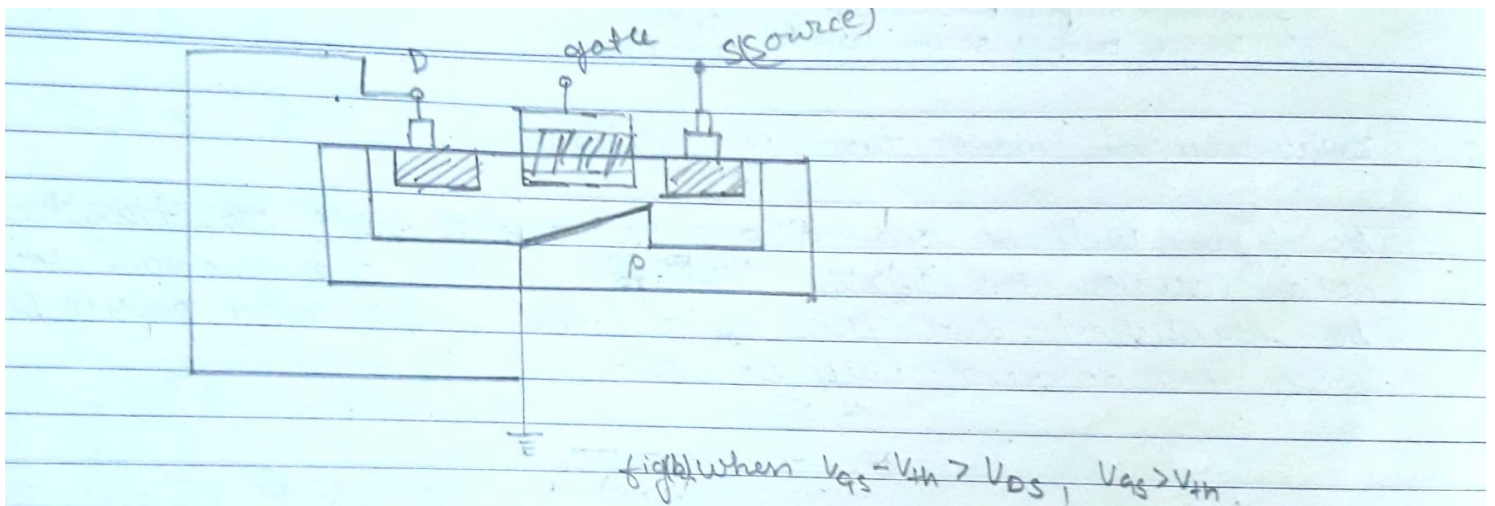 D gate S(Source)
P.
fig(b) when VGS - Vth > VDS, VGS > Vth.